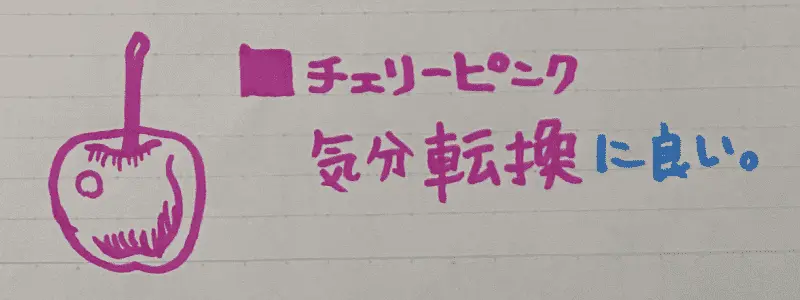 ■チェリーピンク
気分転換に良い。